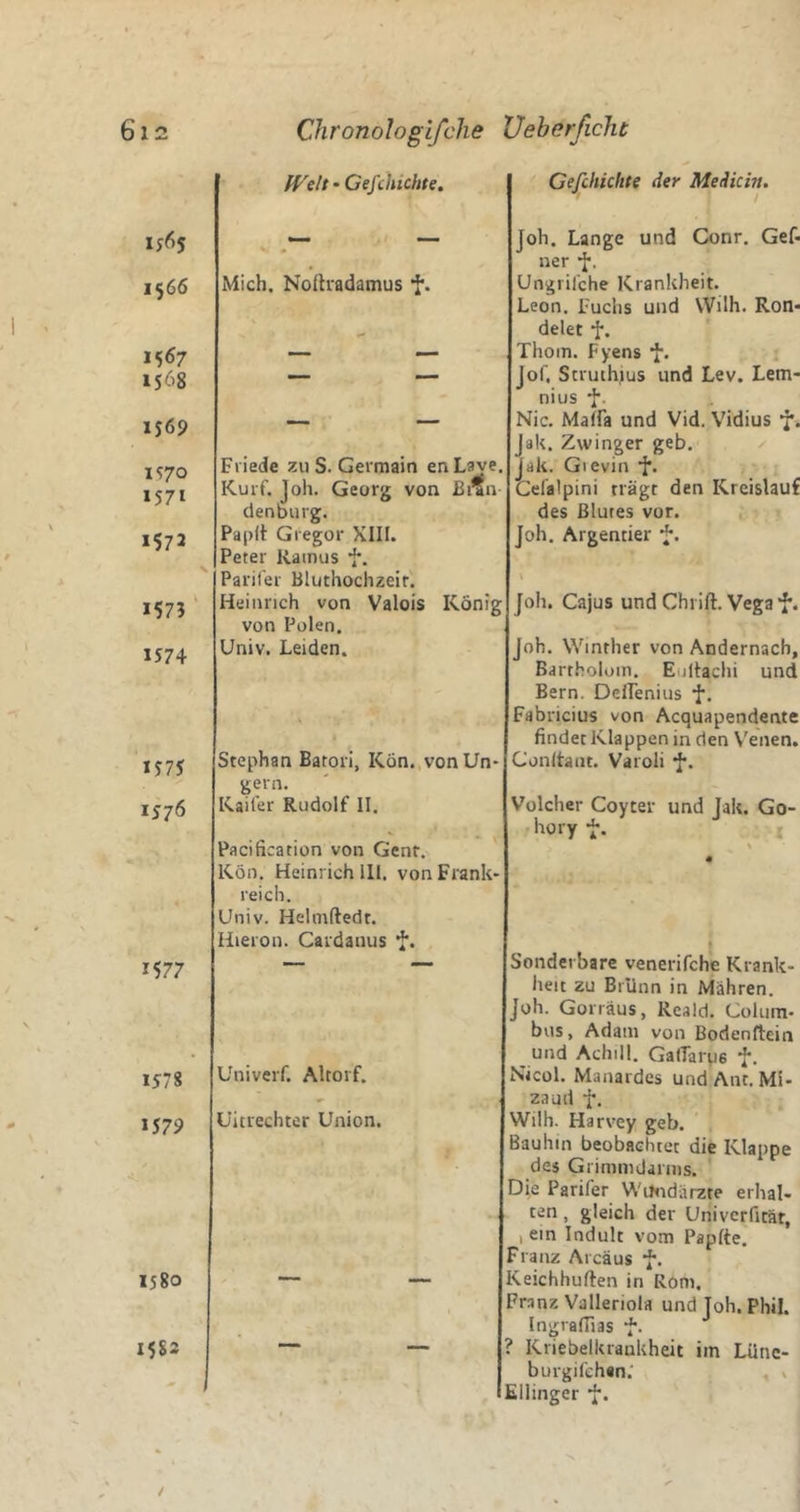 612 Chronologiſche Ueberſicht
Welt-Geſchichte. Geſchichte der Medicin.
1565 — — Joh. Lange und Conr. Geſ-
ner †.
1566 Mich. Noſtradamus †. Ungriſche Krankheit.
Leon. Fuchs und Wilh. Ron-
delet †.
1567 — — Thom. Fyens †.
1568 — — Joſ. Struthius und Lev. Lem-
nius †.
1569 — — Nic. Maſſa und Vid. Vidius †.
Jak. Zwinger geb.
1570 Friede zu S. Germain en Laye. Jak. Grevin †.
1571 Kurf. Joh. Georg von Bran- Ceſalpini trägt den Kreislauf
denburg. des Blutes vor.
1572 Papſt Gregor XIII. Joh. Argentier †.
Peter Ramus †.
Pariſer Bluthochzeit.
1573 Heinrich von Valois König Joh. Cajus und Chriſt. Vega †.
von Polen.
1574 Univ. Leiden. Joh. Winther von Andernach,
Bartholom. Euſtachi und
Bern. Deſſenius †.
Fabricius von Acquapendente
findet Klappen in den Venen.
1575 Stephan Batori, Kön. von Un- Conſtant. Varoli †.
gern.
1576 Kaiſer Rudolf II. Volcher Coyter und Jak. Go-
hory †.
Pacification von Gent.
Kön. Heinrich III. von Frank-
reich.
Univ. Helmſtedt.
Hieron. Cardanus †.
1577 — — Sonderbare veneriſche Krank-
heit zu Brünn in Mähren.
Joh. Gorräus, Reald. Colum-
bus, Adam von Bodenſtein
und Achill. Gaſſarus †.
1578 Univerſ. Altorf. Nicol. Manardes und Ant. Mi-
zaud †.
1579 Uitrechter Union. Wilh. Harvey geb.
Bauhin beobachtet die Klappe
des Grimmdarms.
Die Pariſer Wundärzte erhal-
ten, gleich der Univerſität,
ein Indult vom Papſte.
Franz Arcäus †.
1580 — — Keichhuſten in Rom.
Franz Valleriola und Joh. Phil.
Ingraſſias †.
1582 — — ? Kriebelkrankheit im Lüne-
burgiſchen.
Ellinger †.